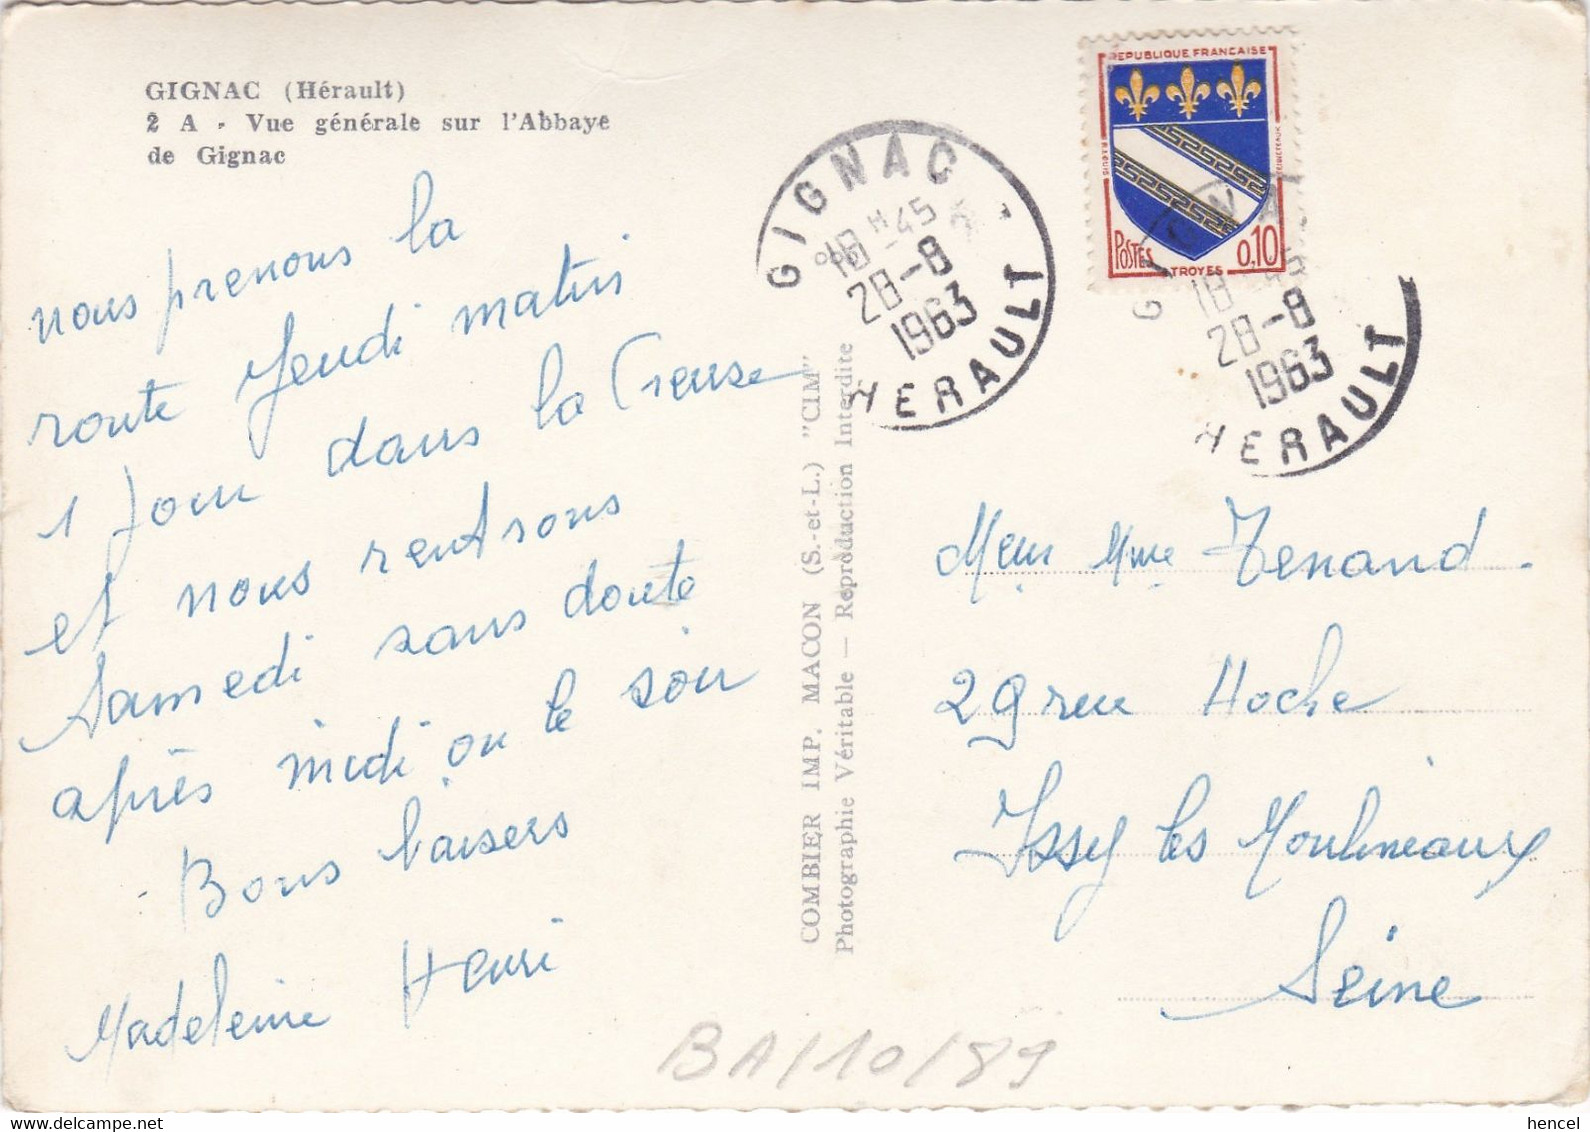 GIGNAC (Hérault)
2 A - Vue générale sur l'Abbaye
de Gignac
nous prenons la
route Jeudi matin
1 Jour dans la Creuse
et nous rentrons
Samedi sans doute
après midi ou le soir
Bons baisers
Madeleine Henri
COMBIER IMP. MACON (S.-et-L.) "CIM"
Photographie Véritable — Reproduction Interdite
GIGNAC
18 H 45
28-8
1963
HERAULT
REPUBLIQUE FRANCAISE
POSTES
0,10
TROYES
18
28-8
1963
HERAULT
Mme
29 rue Hoche
Issy les Moulineaux
Seine
BA/10/89
hencel